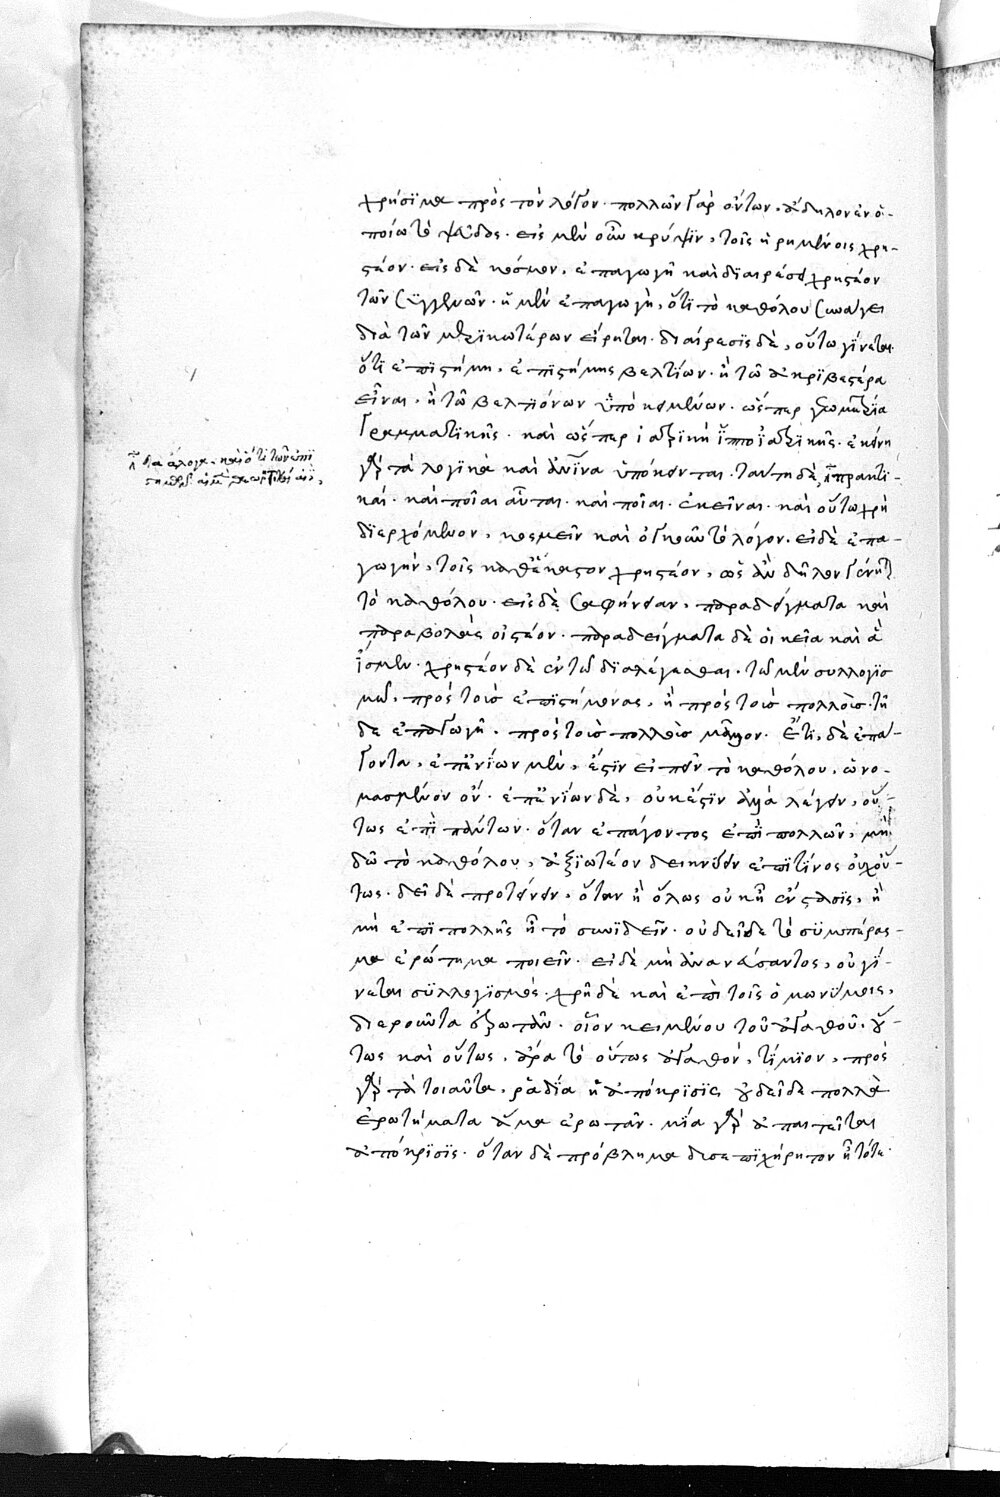 χρήσϊμα πρὸς τὸν λόγον· πολλῶν γὰρ ὄντων, ἄδηλον ἐν ὁ-
ποίω τὸ ψεῦδος· εἰς μὲν οὖν κρύψϊν, τοῖς εἰρημένοις χρη-
στέον· εἰς δὲ κόσμον, ἐπαγωγῆ καὶ διαιρέσει χρηστέον
τῶν συγγενῶν· ἡ μὲν ἐπαγωγὴ, ὅτϊ τὸ καθόλου συνάγει
διὰ τῶν μερϊκωτέρων εἴρηται· διαίρεσϊς δὲ, οὕτω γίνεται·
ὅτϊ ἐπιστήμη, ἐπϊστήμης βελτίων· ἢ τῶ ἀκρϊβεστέρα
εἶναι, ἢ τῶ βελτϊόνων ὑποκειμένων· ὥσπερ γεωμετρία
γραμματϊκῆς· καὶ ὥσπερ ἰατρϊκὴ ἱπποϊατρϊκῆς· ἐκείνη
γὰρ τὰ λογϊκὰ καὶ ἀνΐνα ὑπόκειται· ταύτη δὲ, πρακτϊ-
καί· καὶ ποῖαι αὗται· καὶ ποῖαι ἐκεῖναι· καὶ οὕτω χρὴ
διερχόμενον, κοσμεῖν καὶ ὀγκοῦν τὸν λόγον· εἰ δὲ ἐπα-
γωγὴν, τοῖς καθέκαστον χρηστέον, ὡς ἂν δῆλον γένηται
τὸ καθόλου· εἰς δὲ σαφήνειαν, παραδείγματα καὶ
παραβολὰς οἰστέον· παραδείγματα δὲ οἰκεῖα καὶ ἃ
ἴσμεν· χρηστέον δὲ ἐν τῶ διαλέγεσθαι· τῶ μὲν συλλογϊσ
μῶ, πρὸς τοὺς ἐπϊστήμονας, ἢ πρὸς τοὺς πολλούς· τῆ
δὲ ἐπαγωγῆ, πρὸς τοὺς πολλοὺς μᾶλλον· ἔτϊ, δὲ ἐπά-
γοντα, ἐπενίων μὲν, ἔστϊν εἰπεῖν τὸ καθόλου, ὠνο-
μασμένον ὄν· ἐπενίων δὲ, οὐκ ἔστϊν ἀλλὰ λέγειν, οὕ-
τως ἐπὶ πάντων· ὅταν ἐπάγοντος ἐπὶ πολλῶν, μὴ
δῶ τὸ καθόλου, ἀξϊωτέον δεικνύειν ἐπίτϊνος οὐχ οὕ-
τως· δεῖ δὲ προτείνειν, ὅταν ἢ ὅλως οὐκ ἦ ἔνστασϊς, ἢ
μὴ ἐπιπολῆς ἦ τὸ συνϊδεῖν· οὐ δεῖ δὲ τὸ συμπέρασ-
μα ἐρώτημα ποιεῖν· εἰ δὲ μὴ ἀνανεύσαντος, οὐ γί-
νεται συλλογϊσμός· χρὴ δὲ καὶ ἐπὶ τοῖς ὁμωνύμοις,
διεροῦντα ἐξωτᾶν· οἷον κειμένου τοῦ ἀγαθοῦ· οὕ-
τως καὶ οὕτως, ἄρα τὸ οὕτως ἀγαθόν, τίμϊον, πρὸς
γὰρ τὰ τοιαῦτα, ῥαδία ἡ ἀπόκρϊσϊς οὐ δεῖ δὲ πολλὰ
ἐρωτήματα ἅμα ἐρωτᾶν· μία γὰρ ἀπαιτεῖται
ἀπόκρϊσϊς· ὅταν δὲ πρόβλημα δυσεπϊχείρητον ἦ τότε·
δὲ ἄλογα· καὶ ὅτι τῶν ἐπϊ